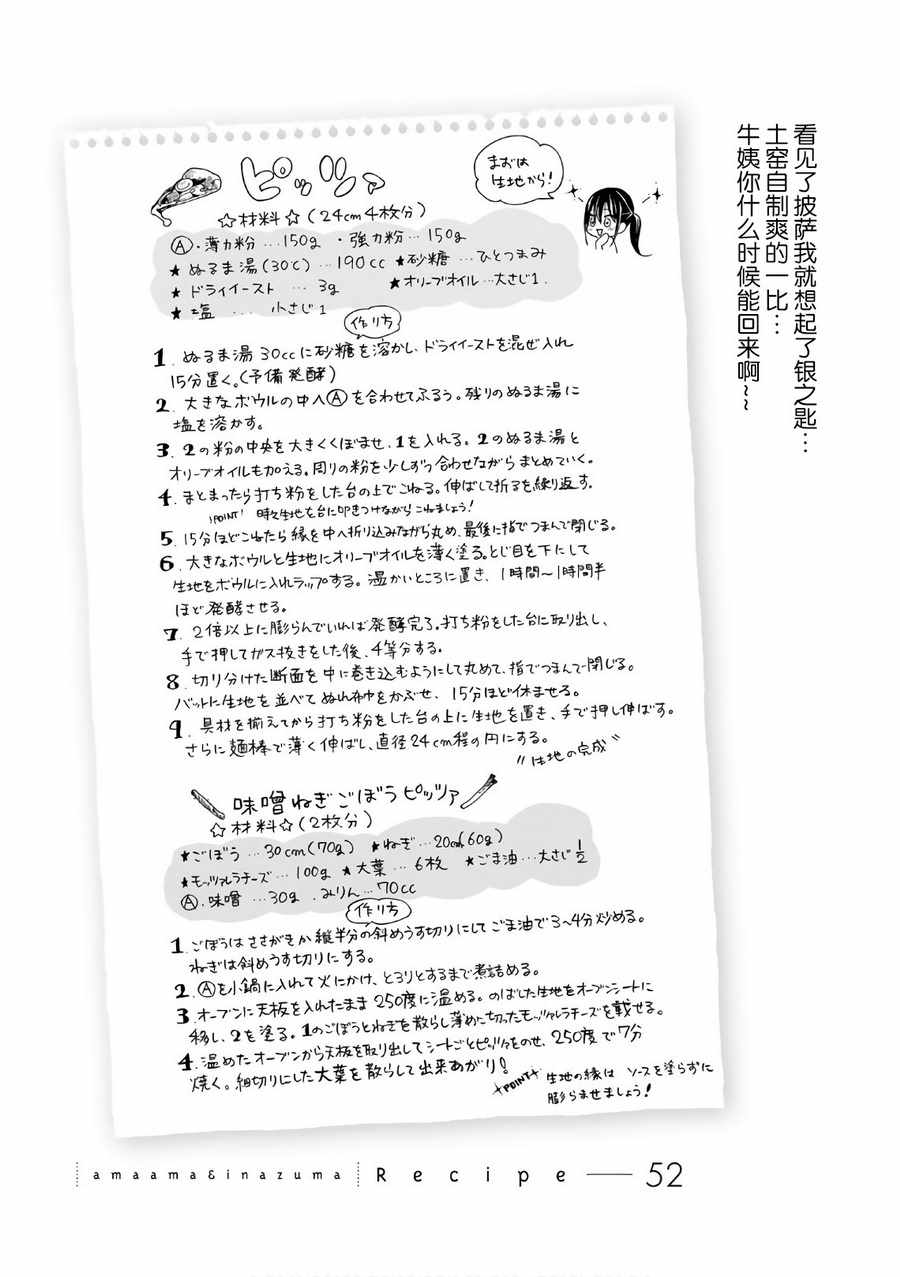 看见了披萨我就想起了银之匙…
土窑自制爽的一比…
牛姨你什么时候能回来啊~~
ピッツァ
まずは
生地から!
☆材料☆(24cm4枚分)
Ⓐ・薄力粉…150g ・強力粉…150g
★ぬるま湯(30℃)…190cc ★砂糖…ひとつまみ
★ドライイースト … 3g ★オリーブオイル…大さじ1.
★塩 … 小さじ1
作り方
1. ぬるま湯30ccに砂糖を溶かし、ドライイーストを混ぜ入れ
15分置く。(予備発酵)
2. 大きなボウルの中へⒶを合わせてふるう。残りのぬるま湯に
塩を溶かす。
3. 2の粉の中央を大きくくぼませ、1を入れる。2のぬるま湯と
オリーブオイルも加える。周りの粉を少しずつ合わせながらまとめていく。
4. まとまったら打ち粉をした台の上でこねる。伸ばして折るを繰り返す。
!POINT! 時々生地を台に叩きつけながらこねましょう!
5. 15分ほどこねたら縁を中へ折り込みながら丸め、最後に指でつまんで閉じる。
6. 大きなボウルと生地にオリーブオイルを薄く塗る。とじ目を下にして
生地をボウルに入れラップする。温かいところに置き、1時間~1時間半
ほど発酵させる。
7. 2倍以上に膨らんでいれば発酵完了。打ち粉をした台に取り出し、
手で押してガス抜きをした後、4等分する。
8. 切り分けた断面を中に巻き込むようにして丸めて、指でつまんで閉じる。
バットに生地を並べてぬれ布巾をかぶせ、15分ほど休ませる。
9. 具材を揃えてから打ち粉をした台の上に生地を置き、手で押し伸ばす。
さらに麺棒で薄く伸ばし、直径24cm程の円にする。
"生地の完成"
味噌ねぎごぼうピッツァ
☆材料☆(2枚分)
★ごぼう…30cm(70g) ★ねぎ…20cm(60g)
★モッツァレラチーズ…100g ★大葉…6枚 ★ごま油…大さじ1/2
Ⓐ・味噌…30g ・みりん…70cc
作り方
1. ごぼうはささがきか縦半分の斜めうす切りにしてごま油で3~4分炒める。
ねぎは斜めうす切りにする。
2. Ⓐを小鍋に入れて火にかけ、とろりとするまで煮詰める。
3. オーブンに天板を入れたまま250度に温める。のばした生地をオーブンシートに
移し、2を塗る。1のごぼうとねぎを散らし薄めに切ったモッツァレラチーズを載せる。
4. 温めたオーブンから天板を取り出してシートごとピッツァをのせ、250度で7分
焼く。細切りにした大葉を散らして出来あがり!
POINT 生地の縁は ソースを塗らずに
膨らませましょう!
amaama&inazuma Recipe 52